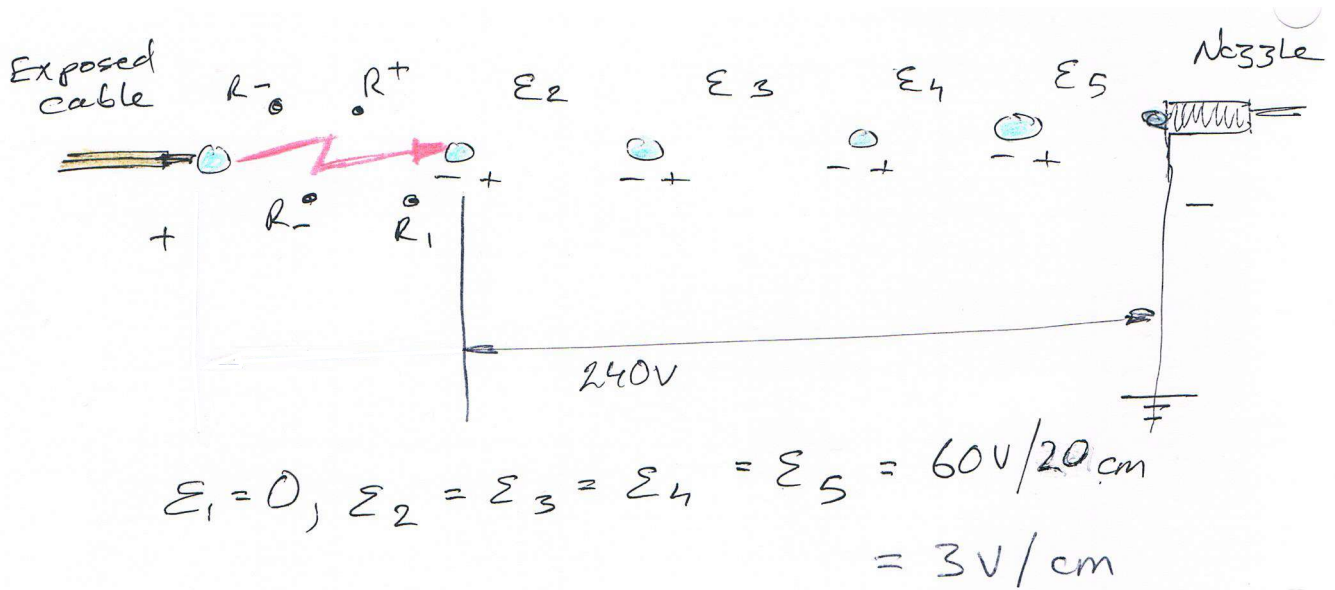 Exposed
cable
R- R+ ε2 ε3 ε4 ε5 Nozzle
- + - + - + - +
R- R1
+ -
240V
ε1 = 0, ε2 = ε3 = ε4 = ε5 = 60V/20cm
= 3V/cm